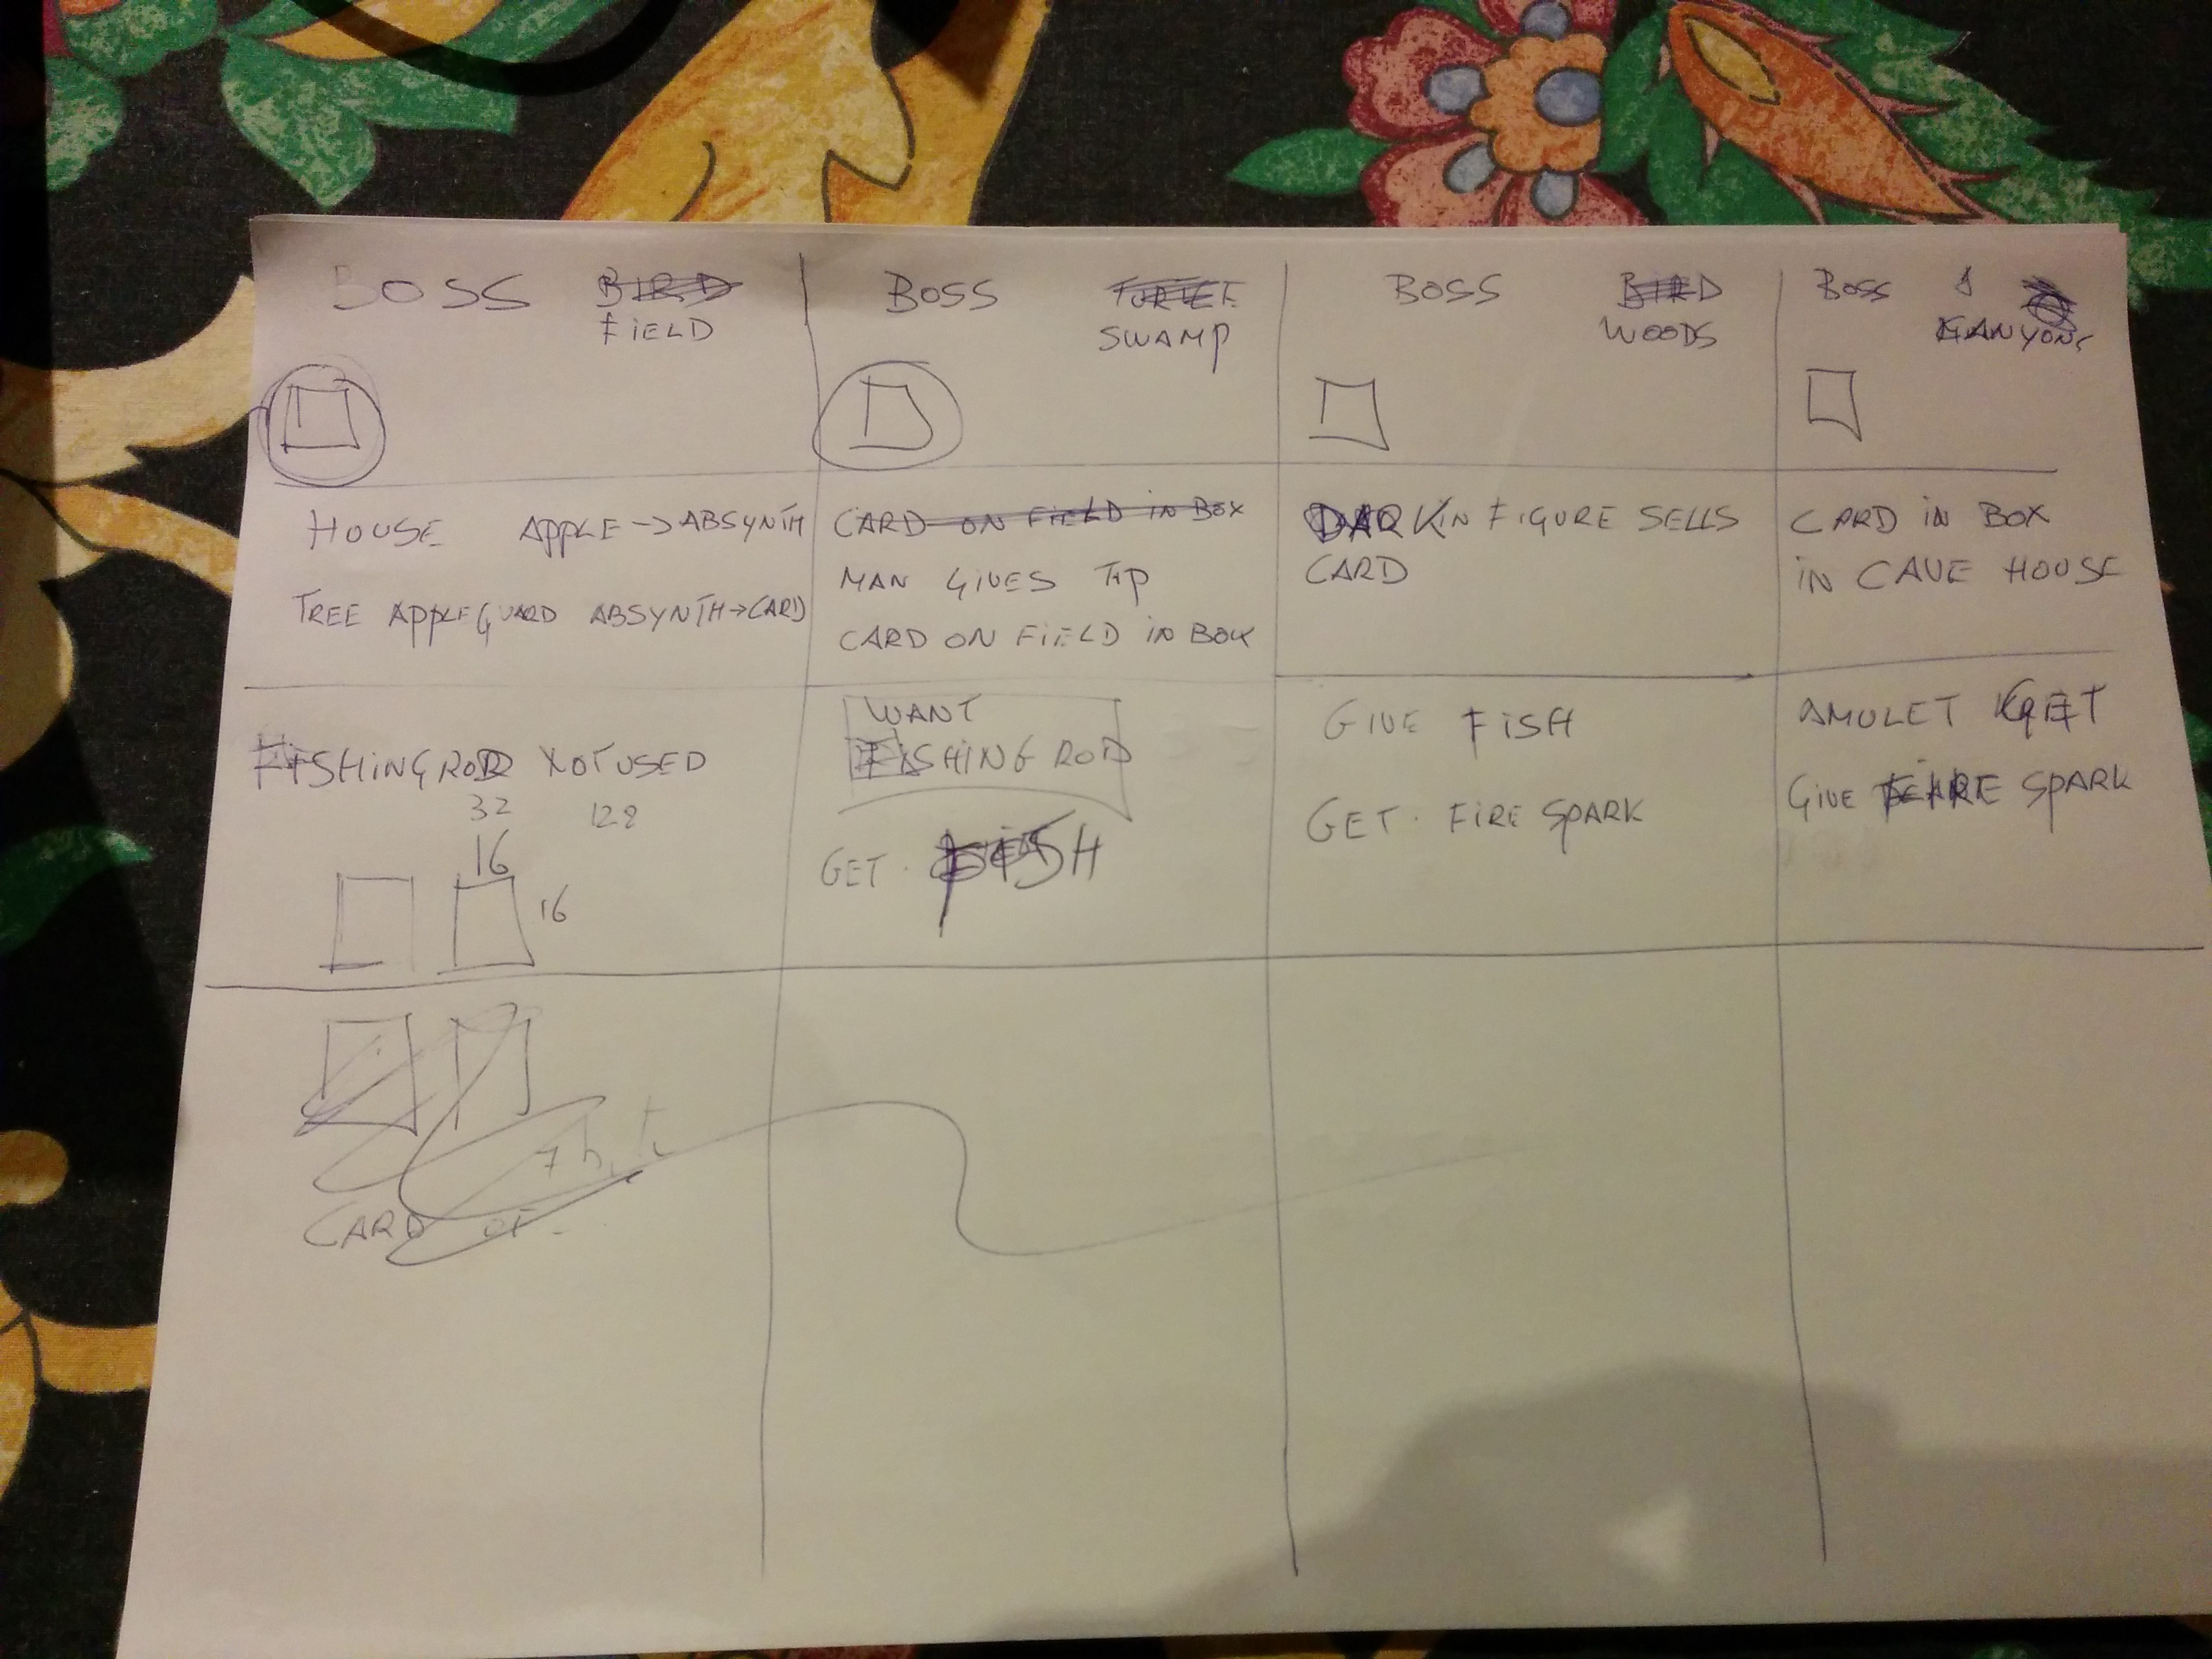 BOSS BIRD
FIELD
BOSS TURTLE
SWAMP
BOSS BIRD
WOODS
BOSS
KANYONS
HOUSE APPLE → ABSYNTH
TREE APPLEGUARD ABSYNTH → CARD
CARD ON FIELD IN BOX
MAN GIVES TIP
CARD ON FIELD IN BOX
DARK IN FIGURE SELLS
CARD
CARD IN BOX
IN CAVE HOUSE
FISHING ROD NOT USED
32 128
16
16
WANT
FISHING ROD
GET FISH
GIVE FISH
GET FIRE SPARK
AMULET GET
GIVE FIRE SPARK
CARD OF